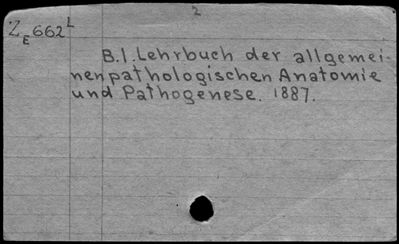 2
Z_E 662 L
B.1. Lehrbuch der allgemei-
nen pathologischen Anatomie
und Pathogenese. 1887.